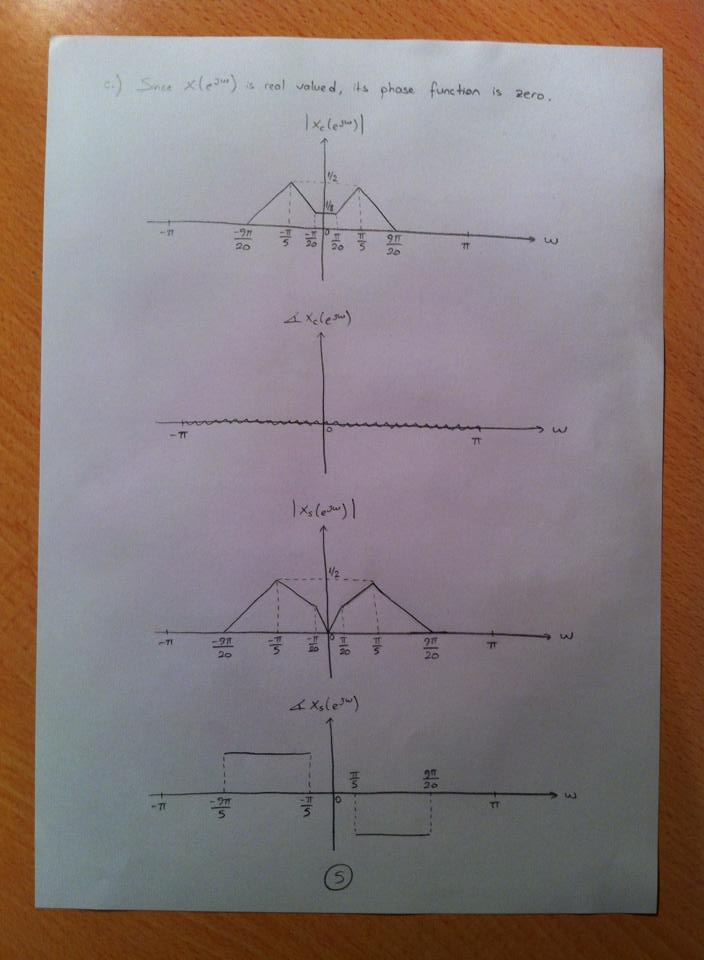 c.) Since X(e^jω) is real valued, its phase function is zero.
|Xc(e^jω)|
1/2
1/8
-π -9π/20 -π/5 -π/20 0 π/20 π/5 9π/20 π ω
∡ Xc(e^jω)
-π 0 π ω
|Xs(e^jω)|
1/2
-π -9π/20 -π/5 -π/20 0 π/20 π/5 9π/20 π ω
∡ Xs(e^jω)
π/5 9π/20
-π -9π/5 -π/5 0 π ω
5